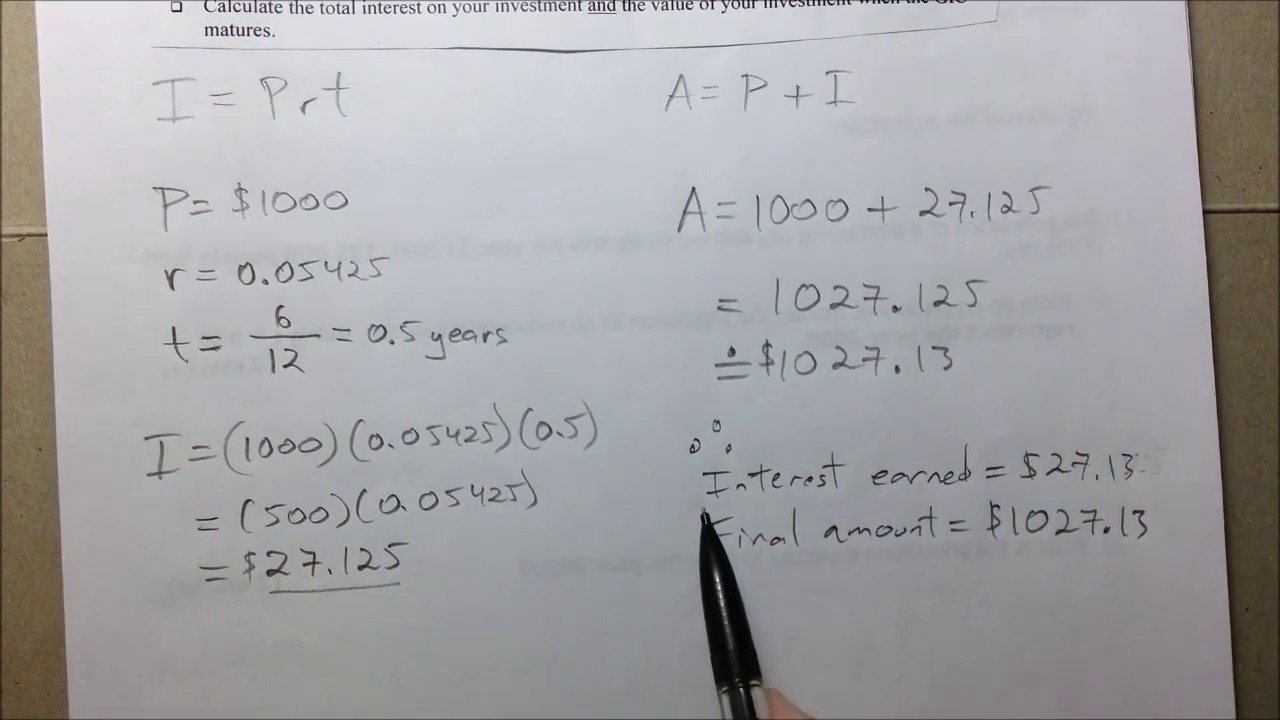 Calculate the total interest on your investment and the value of your investment when the GIC
matures.
I = Prt
P = $1000
r = 0.05425
t = 6/12 = 0.5 years
I = (1000)(0.05425)(0.5)
= (500)(0.05425)
= $27.125
A = P + I
A = 1000 + 27.125
= 1027.125
≐ $1027.13
∴
Interest earned = $27.13
Final amount = $1027.13